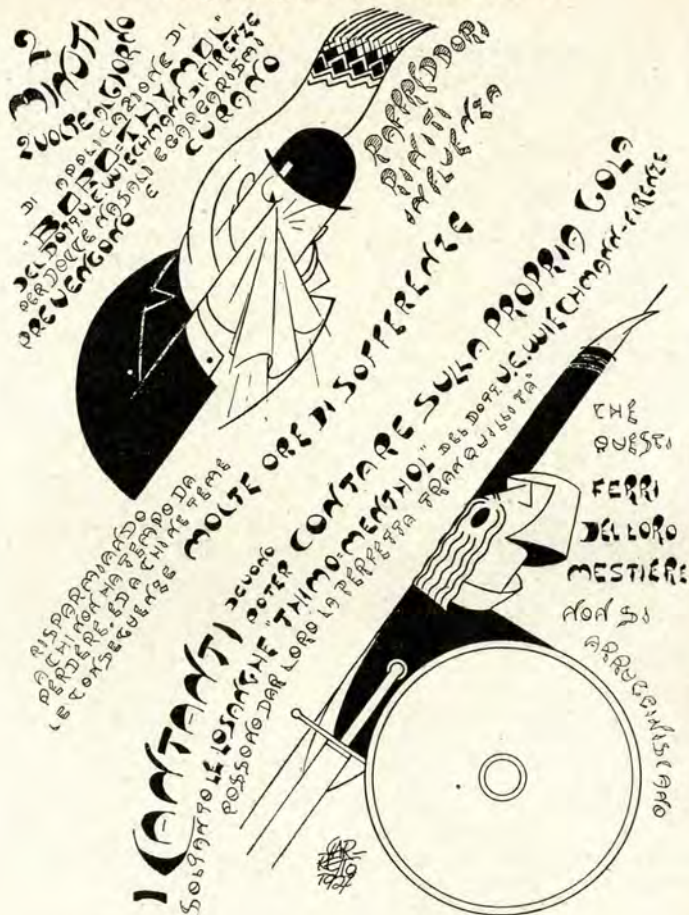 2
MINUTI
2 VOLTE AL GIORNO
DI APPLICAZIONE DI
"BORO=THYMOL"
DEL DOTT. V.E. WIECHMANN DI FIRENZE
PER DOCCE NASALI E GARGARISMI
PREVENGONO E CURANO
RAFFREDDORI
RINITI
INFLUENZA
RISPARMIANDO
A CHI NON HA TEMPO DA
PERDERE ED A CHI NE TEME
LE CONSEGUENZE MOLTE ORE DI SOFFERENZE
I CANTANTI DEVONO POTER CONTARE SULLA PROPRIA GOLA
SOLTANTO LE LOSANGHE "THIMO=MENTHOL" DEL DOTT. V.E. WIECHMANN-FIRENZE
POSSONO DAR LORO LA PERFETTA TRANQUILLITÀ
CHE
QUESTI
FERRI
DEL LORO
MESTIERE
NON SI
ARRUGGINISCANO